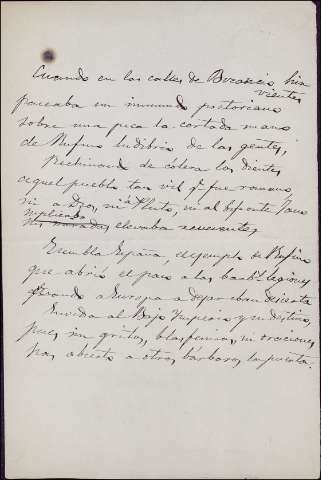 Cuando en las calles de Bizancio, hir-
vientes
paseaba un inmundo pretoriano
sobre una pica la cortada mano
de Rufino ludibrio de las gentes,
Rechinando de cólera los dientes
aquel pueblo tan vil q.e fue romano
ni a Dios, ni a Pluto, ni al bifronte Jano
suplicando
sus miradas elevaba reverentes.
Tiembla España, el ejemplo de Rufino
que abrió el paso a las barb.s legiones
a Europa a dejar desierta
Envidia al Bajo Imperio y su destino,
pues, sin gritos, blasfemias, ni oraciones
has abierto a otros bárbaros la puerta.